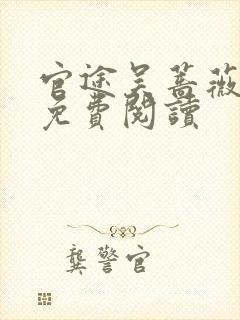 官途吴蔷薇
免費閱讀
龔警官